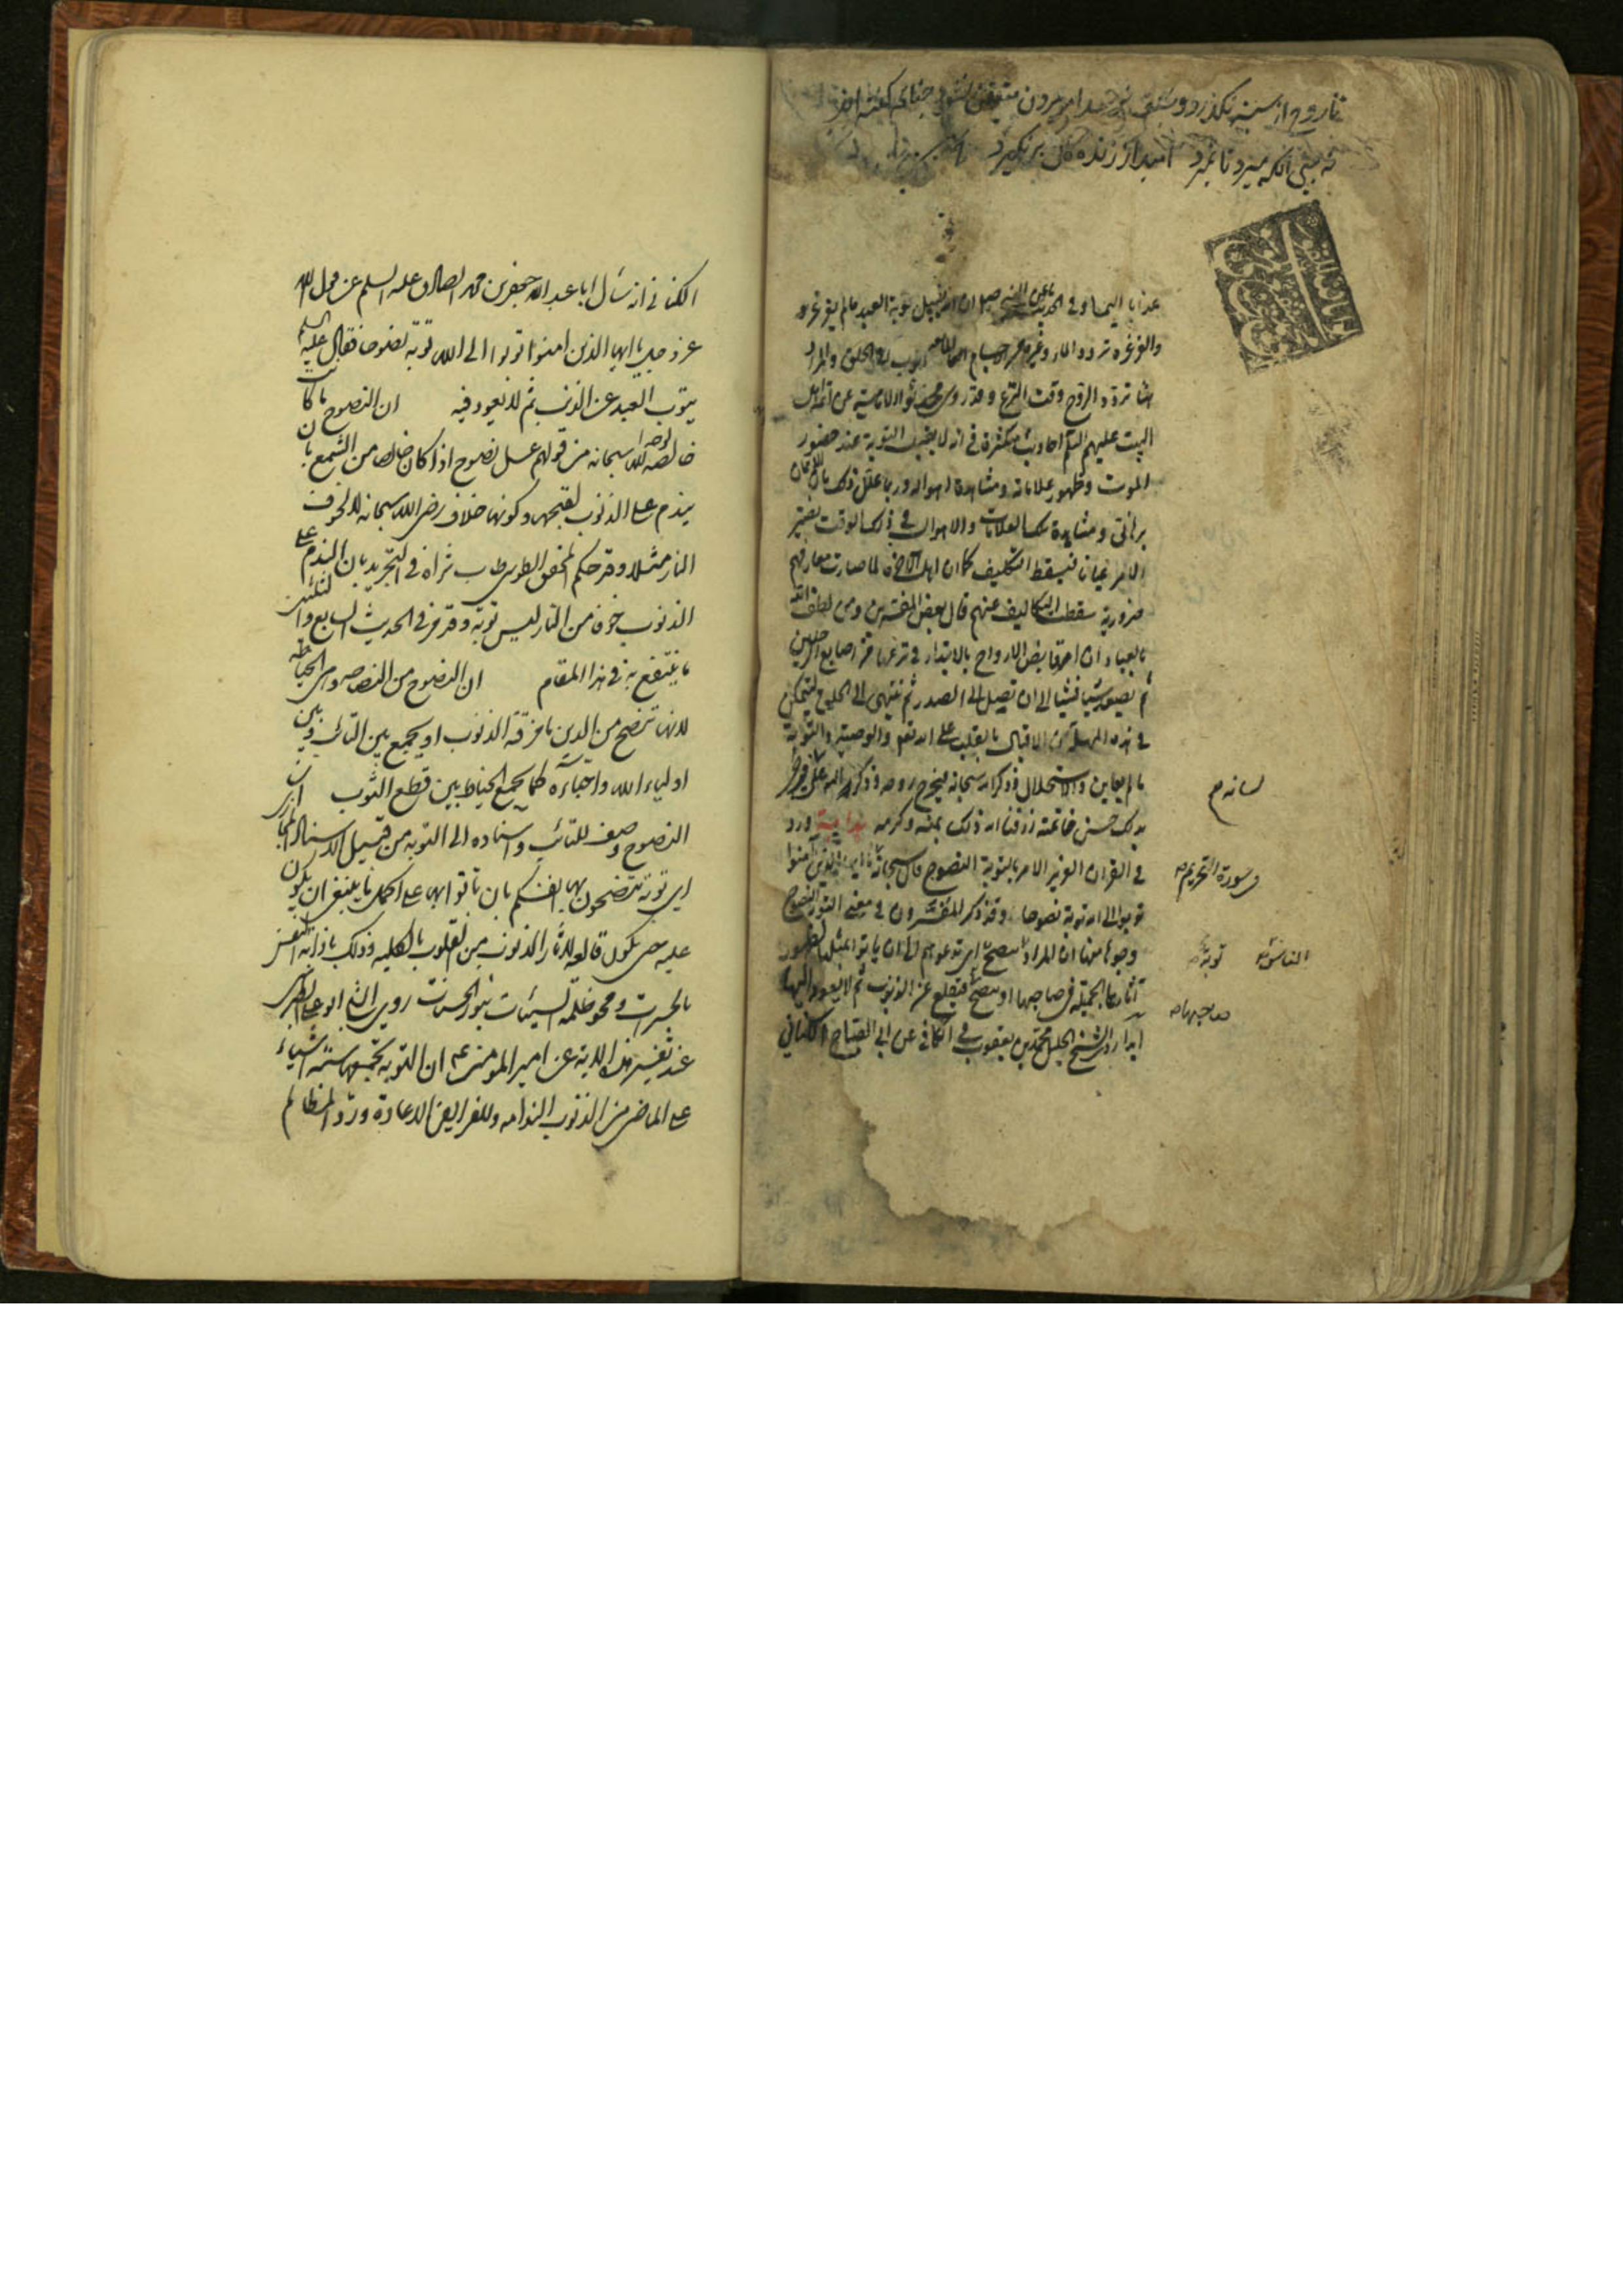 تا روح از سینه نگذرد و بحلق نرسد امر مردن متیقن نشود چنانچه گفته اند
نه بینی آنکه میرد تا نمیرد امید از زندگانی برنگیرد
عذابا الیما و فی الحدیث عن النبی ص ان الله یقبل توبة العبد ما لم یغرغر
والغرغرة تردد الماء وغیره من الاجسام المایعة فی الحلق والمراد
هنا تردد الروح وقت النزع وقد روی محدثوا الامامیة عن ائمة اهل
البیت علیهم السلم احادیث متکثرة فی انه لا یقبل التوبة عند حضور
الموت وظهور علاماته ومشاهدة اهواله وربما علل ذلک بان الایمان
برهانی ومشاهدة تلک العلامات والاهوال فی ذلک الوقت یصیر
الامر عیانا فیسقط التکلیف کما ان اهل الآخرة لما صارت معارفهم
ضروریة سقطت التکالیف عنهم قال بعض المفسرین ومن لطف الله
بالعباد ان امر قابض الارواح بالابتداء فی نزعها من اصابع الرجلین
ثم یصعد شیئا فشیئا الی ان تصل الی الصدر ثم تنتهی الی الحلق لیتمکن
فی هذه المهلة من الاقبال بالقلب علی الله تعم والوصیة والتوبة
ما لم یعاین والاستحلال وذکر الله سبحانه فیخرج روحه وذکر الله علی
لسانه م
بذلک حسن خاتمته رزقنا الله ذلک بمنه وکرمه هدایة ورد
فی القران العزیز الامر بالتوبة النصوح قال سبحانه یا ایها الذین آمنوا
فی سورة التحریم صه
توبوا الی الله توبة نصوحا وقد ذکر المفسرون فی معنی التوبة النصوح
وجوها منها ان المراد تنصح ای تدعوهم الی ان یاتوا بمثلها لظهور
الناس توبة
آثارها الجمیلة فی صاحبها او تنصح فیقلع عن الذنوب ثم لا یعود الیها
صاحبها صه
ابدا روی الشیخ الجلیل محمد بن یعقوب فی الکافی عن ابی الصباح الکنانی
الکنانی انه سأل ابا عبد الله جعفر بن محمد الصادق علیه السلم عن قول الله
عز وجل یا ایها الذین امنوا توبوا الی الله توبة نصوحا فقال علیه السلم
یتوب العبد عن الذنب ثم لا یعود فیه ان النصوح ما کانت
خالصة لوجه الله سبحانه من قولهم عسل نصوح اذا کان خالصا من الشمع بان
یندم علی الذنوب لقبحها وکونها خلاف رضی الله سبحانه لا لخوف
النار مثلا وقد حکم المحقق الطوسی طاب ثراه فی التجرید بان الندم علی
الذنوب خوفا من النار لیس توبة وقد مر فی الحدیث السابع والثلثین
ما ینتفع به فی هذا المقام ان النصوح من النصاحة وهی الخیاطة
لانها تنصح من الدین ما مزقته الذنوب او یجمع بین التائب وبین
اولیاء الله واحبائه کما یجمع الخیاط بین قطع الثوب ان
النصوح وصف للتائب واسناده الی التوبة من قبیل الاسناد المجازی
ای توبة تنصحون بها انفسکم بان تاتوا بها علی اکمل ما ینبغی ان یکون
علیه حتی یکون قالعة لاثار الذنوب من القلوب بالکلیة وذلک باذابة النفس
بالحسرات ومحو ظلمة السیئات بنور الحسنات روی الشیخ ابو علی الطبرسی
عند تفسیر هذه الایة عن امیر المومنین ع ان التوبة تجمعها ستة اشیاء
علی الماضی من الذنوب الندامة وللفرایض الاعادة ورد المظالم